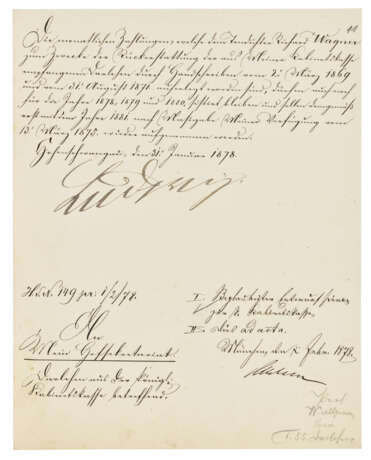 Die monatlichen Zahlungen, welche der Tondichter Richard Wagner
zum Zwecke der Rückerstattung der aus Meiner Kabinetskasse
empfangenen Darlehen durch Handschreiben vom 2. März 1869
und vom 31. August 1871 aufgelegt worden sind, dürfen auch noch
für die Jahre 1878, 1879 und 1880 sistirt bleiben und sollen demgemäß
erst mit dem Jahre 1881 nach Maßgabe Meiner Verfügung vom
13. März 1875 wieder aufgenommen werden.
Hohenschwangau, den 31. Januar 1878.
Ludwig
149 pr. 1/2/78.
An
Mein Hofsekretariat.
Darlehen aus der Königl.
Kabinetskasse betreffend.
I.
zur k. Kabinetskasse.
II. Sus ad acta.
München, den 2. Febr. 1878.